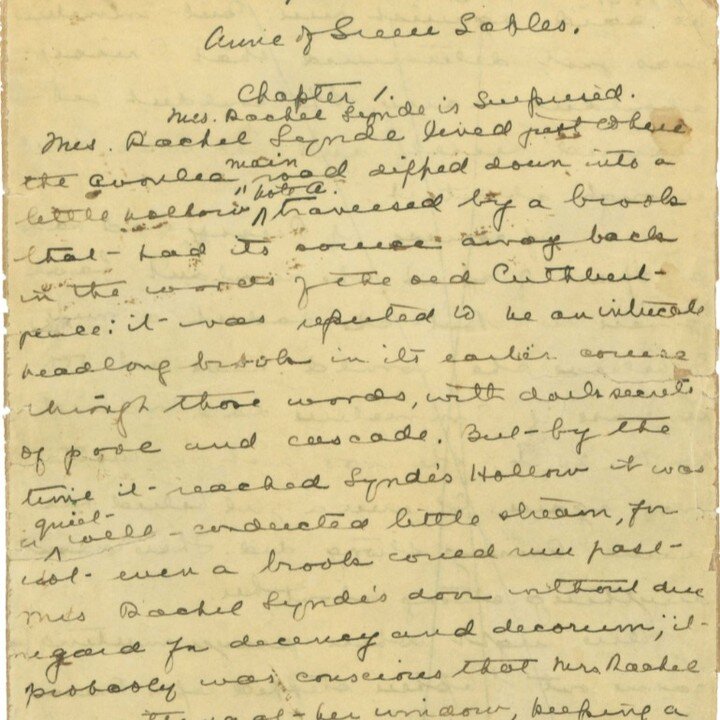 Anne of Green Gables.
Chapter 1.
Mrs. Rachel Lynde is Surprised.
Mrs. Rachel Lynde lived just where
main
the Avonlea road dipped down into a
"Note A.
little hollow traversed by a brook
that had its source away back
in the woods of the old Cuthbert
place: it was reputed to be an intricate
headlong brook in its earlier course
through those woods, with dark secrets
of pool and cascade. But by the
time it reached Lynde's Hollow it was
quiet
a well-conducted little stream, for
not even a brook could run past
Mrs Rachel Lynde's door without due
regard for decency and decorum; it
probably was conscious that Mrs. Rachel
at her window, keeping a